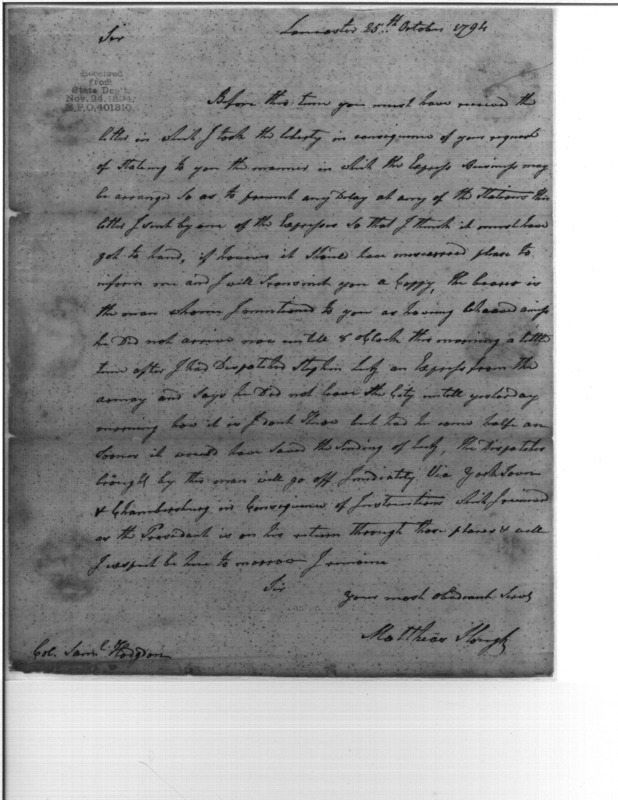 Lancaster 25th October 1794
Sir
Received
from
State Dep't.
Nov. 24, 1894,
R.P.O. 401310.
Before this time you must have received the
letter in which I took the liberty in consequence of your request
of Stateing to you the manner in which the Express Business may
be arranged so as to prevent any Delay at any of the Stations this
letter I sent by one of the Expresses so that I think it must have
got to hand, if however it should have miscarried please to
inform me and I will transmit you a Coppy, the bearer is
the man whome I mentioned to you as having behaved amiss
he Did not arrive now untill 8 oClock this morning a little
time after I had Dispatched Stephen an Express from the
armey and says he Did not leave the City untill yesterday
morning how it is I dont know but had he come half an
sooner it would have saved the sending of the Dispatches
brought by this man will go off Imediately Via York Town
& Chambersburg in Consequence of Instructions which I received
as the President is on his return through those places & will
I exspect be here to morrow I remaine
Sir
your most obedeant Servt
Matthias Slough
Col. Saml. Hodgdon